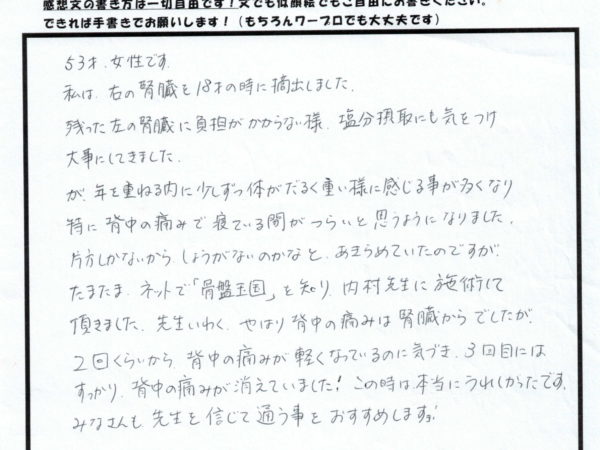 感想文の書き方は一切自由です！文でも似顔絵でもご自由にお書きください。
できれば手書きでお願いします！（もちろんワープロでも大丈夫です）
53才、女性です。
私は、右の腎臓を18才の時に摘出しました。
残った左の腎臓に負担がかからない様、塩分摂取にも気をつけ
大事にしてきました。
が、年を重ねる内に少しずつ体がだるく重い様に感じる事が多くなり
特に背中の痛みで寝ている間がつらいと思うようになりました。
片方しかないから、しょうがないのかなと、あきらめていたのですが
たまたま、ネットで「骨盤王国」を知り、内村先生に施術して
頂きました。先生いわく、やはり背中の痛みは腎臓からでしたが、
2回くらいから、背中の痛みが軽くなっているのに気づき、3回目には
すっかり、背中の痛みが消えていました！この時は本当にうれしかったです。
みなさんも、先生を信じて通う事をおすすめしますョ!